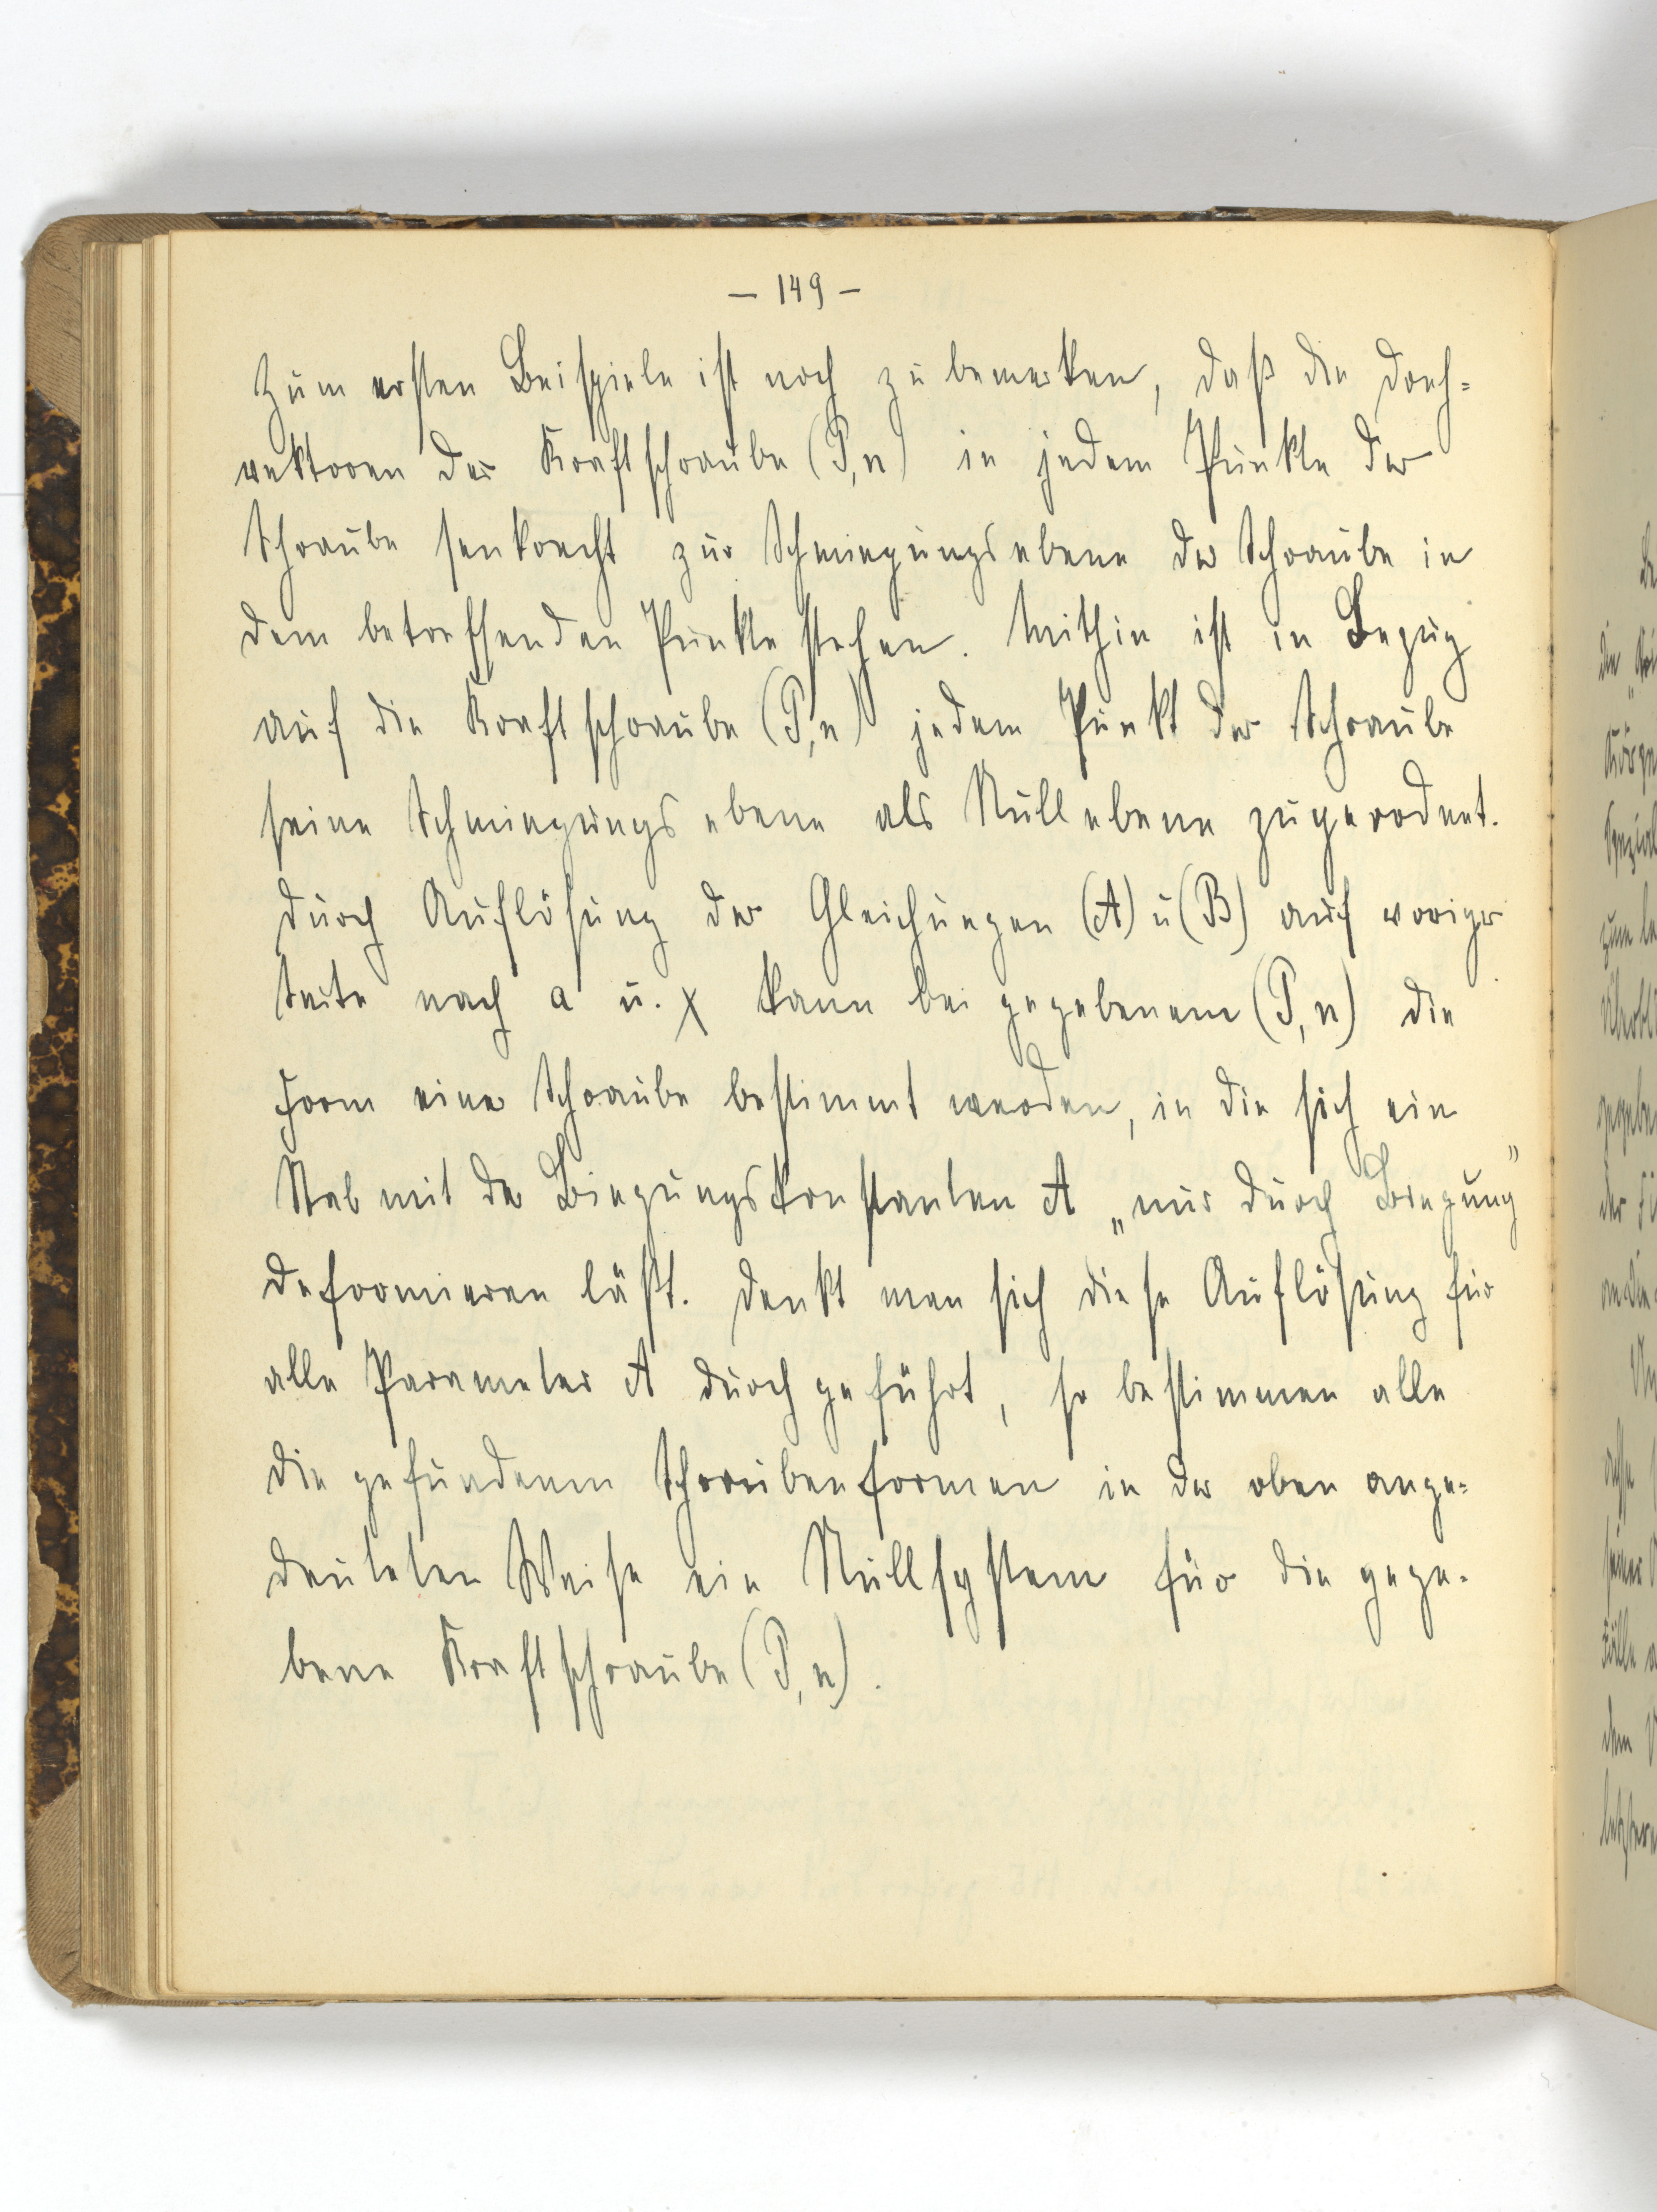 – 149 –
Zum ersten Beispiele ist noch zu bemerken, daß die Dreh=
vektoren der Kraftschraube (P, n) in jedem Punkte der
Schraube senkrecht zur Schmiegungsebene der Schraube in
dem betreffenden Punkte stehen. Mithin ist in Bezug
auf die Kraftschraube (P, n) jedem Punkt der Schraube
seine Schmiegungsebene als Nullebene zugeordnet.
Durch Auflösung der Gleichungen (A) u (B) auf voriger
Seite nach a u. χ kann bei gegebenem (P, n) die
Form einer Schraube bestimmt werden, in die sich ein
Stab mit der Biegungskonstanten A „nur durch Biegung"
deformieren läßt. Denkt man sich diese Auflösung für
alle Parameter A durchgeführt, so bestimmen alle
die gefundenen Schraubenformen in der oben ange=
deuteten Weise ein Nullsystem für die gege=
bene Kraftschraube (P, n).